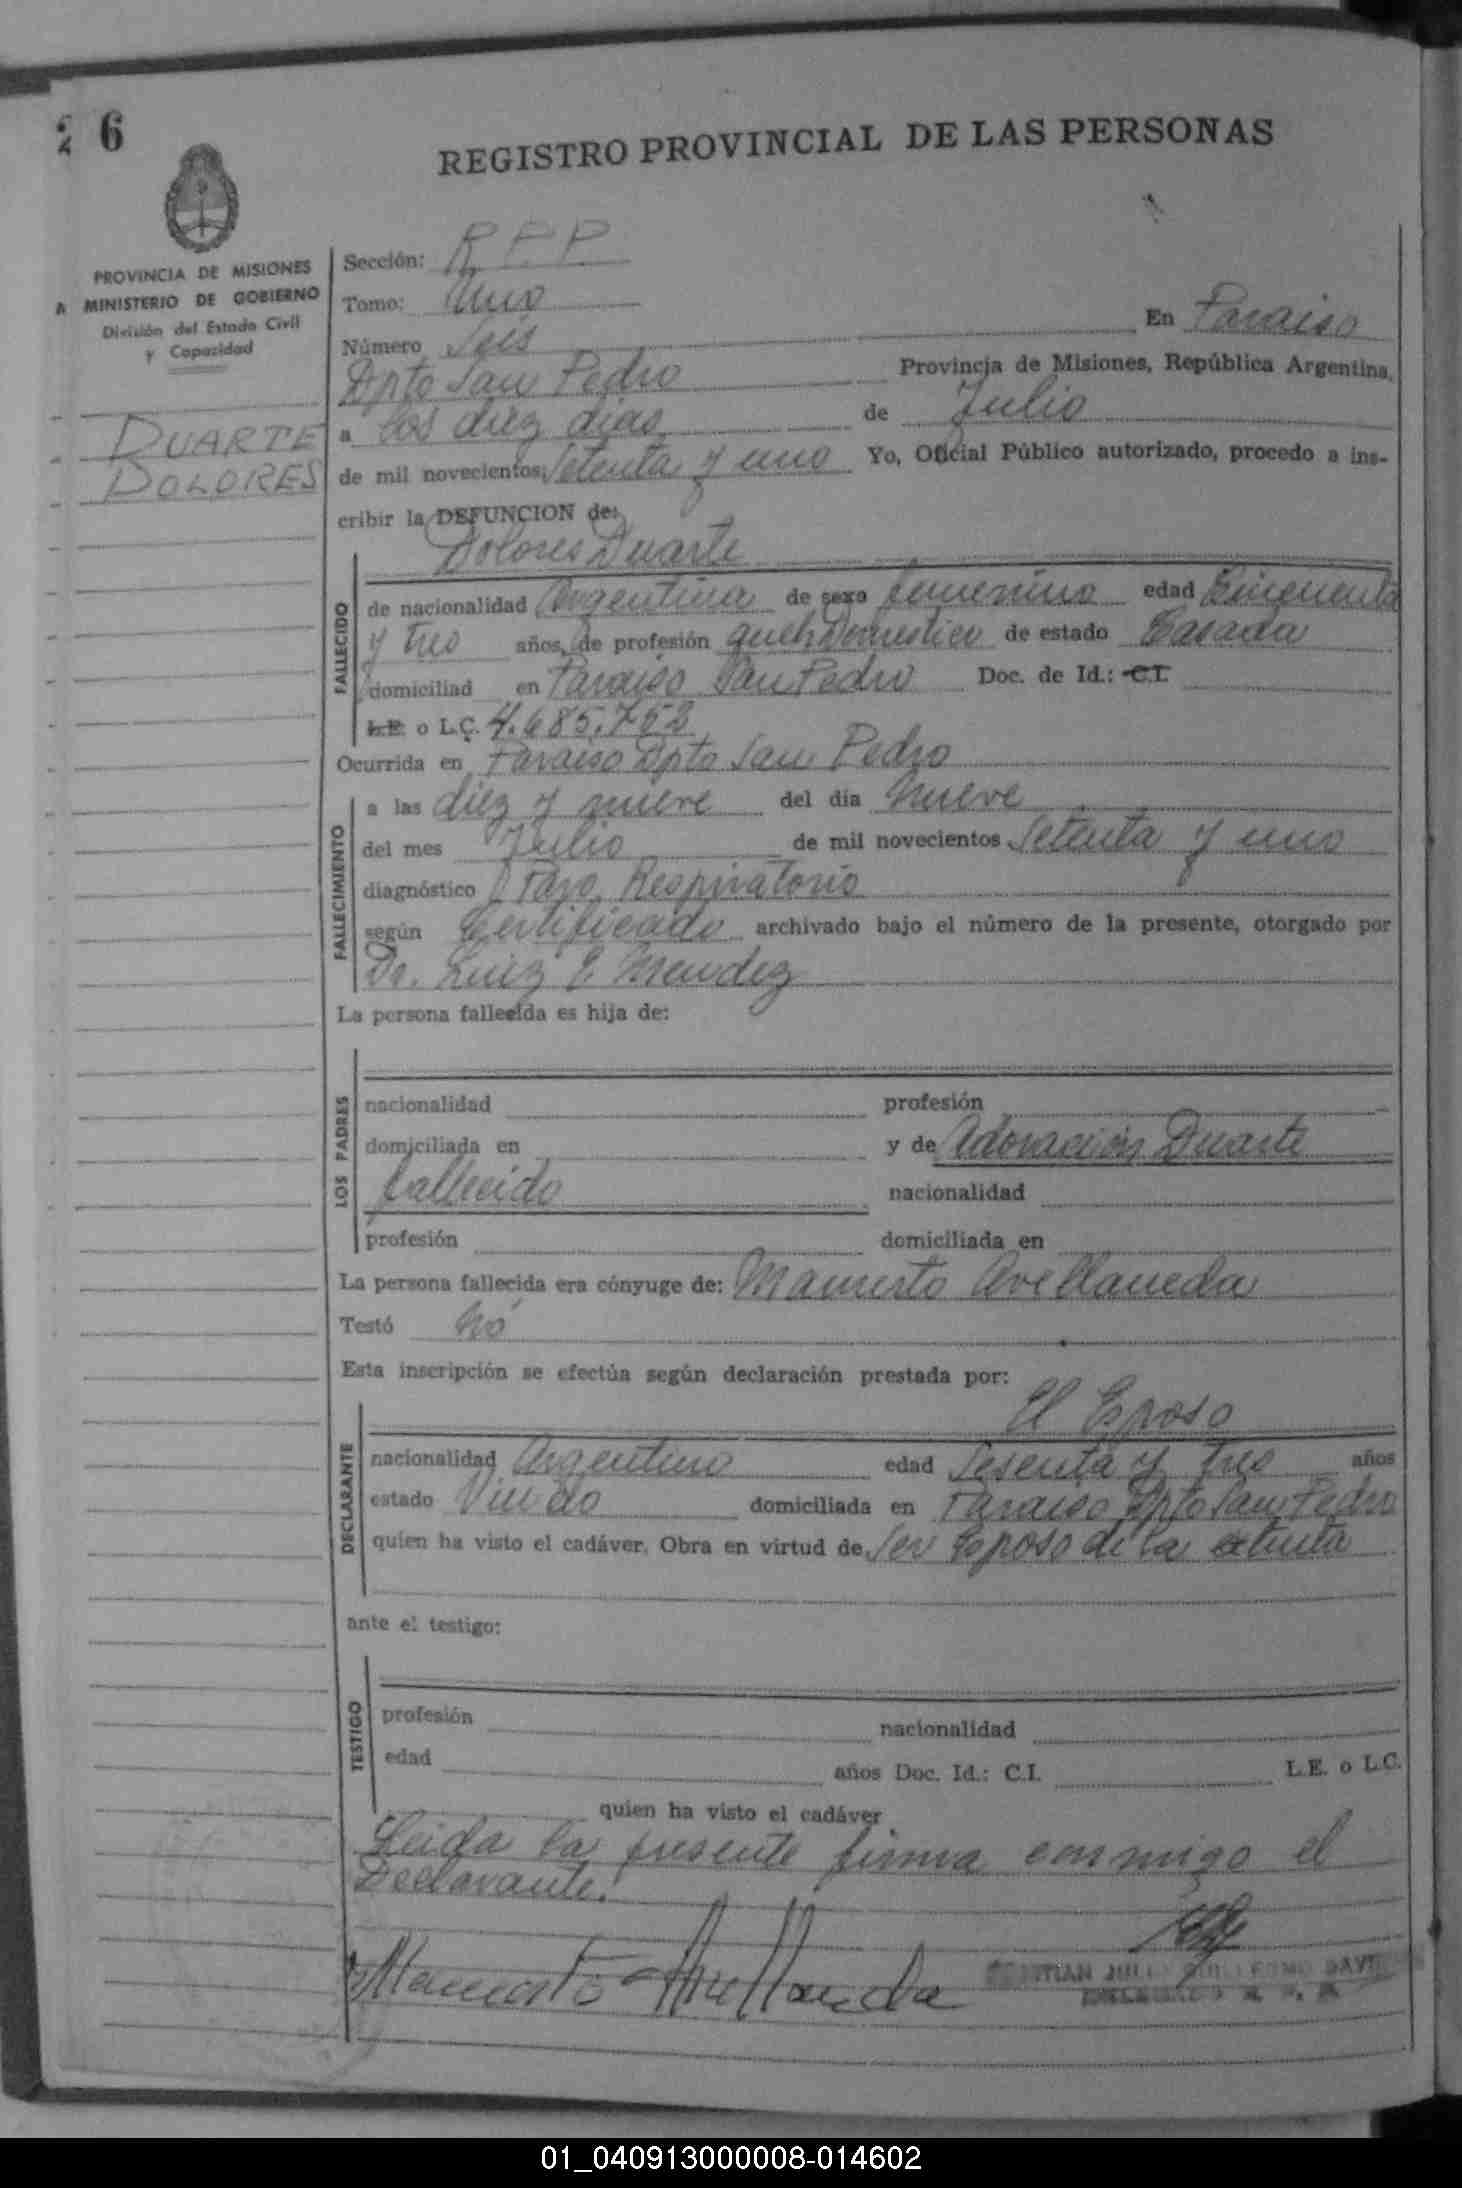 6
REGISTRO PROVINCIAL DE LAS PERSONAS
PROVINCIA DE MISIONES
MINISTERIO DE GOBIERNO
División del Estado Civil
y Capacidad
DUARTE
DOLORES
Sección: R P P
Tomo: Uno
Número Seis En Paraiso
Dpto San Pedro Provincia de Misiones, República Argentina,
a los diez dias de Julio
de mil novecientos, Setenta y uno Yo, Oficial Público autorizado, procedo a ins-
cribir la DEFUNCION de:
Dolores Duarte
FALLECIDO
de nacionalidad Argentina de sexo femenino edad Cincuenta
y tres años, de profesión queh Domestico de estado Casada
domiciliad en Paraiso San Pedro Doc. de Id.: C.I.
L.E. o L.C. 4.685.752
Ocurrida en Paraiso Dpto San Pedro
FALLECIMIENTO
a las diez y nueve del día Nueve
del mes Julio de mil novecientos Setenta y uno
diagnóstico Paro Respiratorio
según Certificado archivado bajo el número de la presente, otorgado por
Dr. Luiz Mendez
La persona fallecida es hija de:
LOS PADRES
nacionalidad profesión
domiciliada en y de Adoración Duarte
fallecido nacionalidad
profesión domiciliada en
La persona fallecida era cónyuge de: Mamerto Avellaneda
Testó No
Esta inscripción se efectúa según declaración prestada por:
El Esposo
DECLARANTE
nacionalidad Argentino edad Sesenta y tres años
estado Viudo domiciliada en Paraiso Dpto San Pedro
quien ha visto el cadáver. Obra en virtud de Ser Esposo de la extinta
ante el testigo:
TESTIGO
profesión nacionalidad
edad años Doc. Id.: C.I. L.E. o L.C.
quien ha visto el cadáver
Leida la presente firma conmigo el
Declarante.
Mamerto Avellaneda
01_040913000008-014602